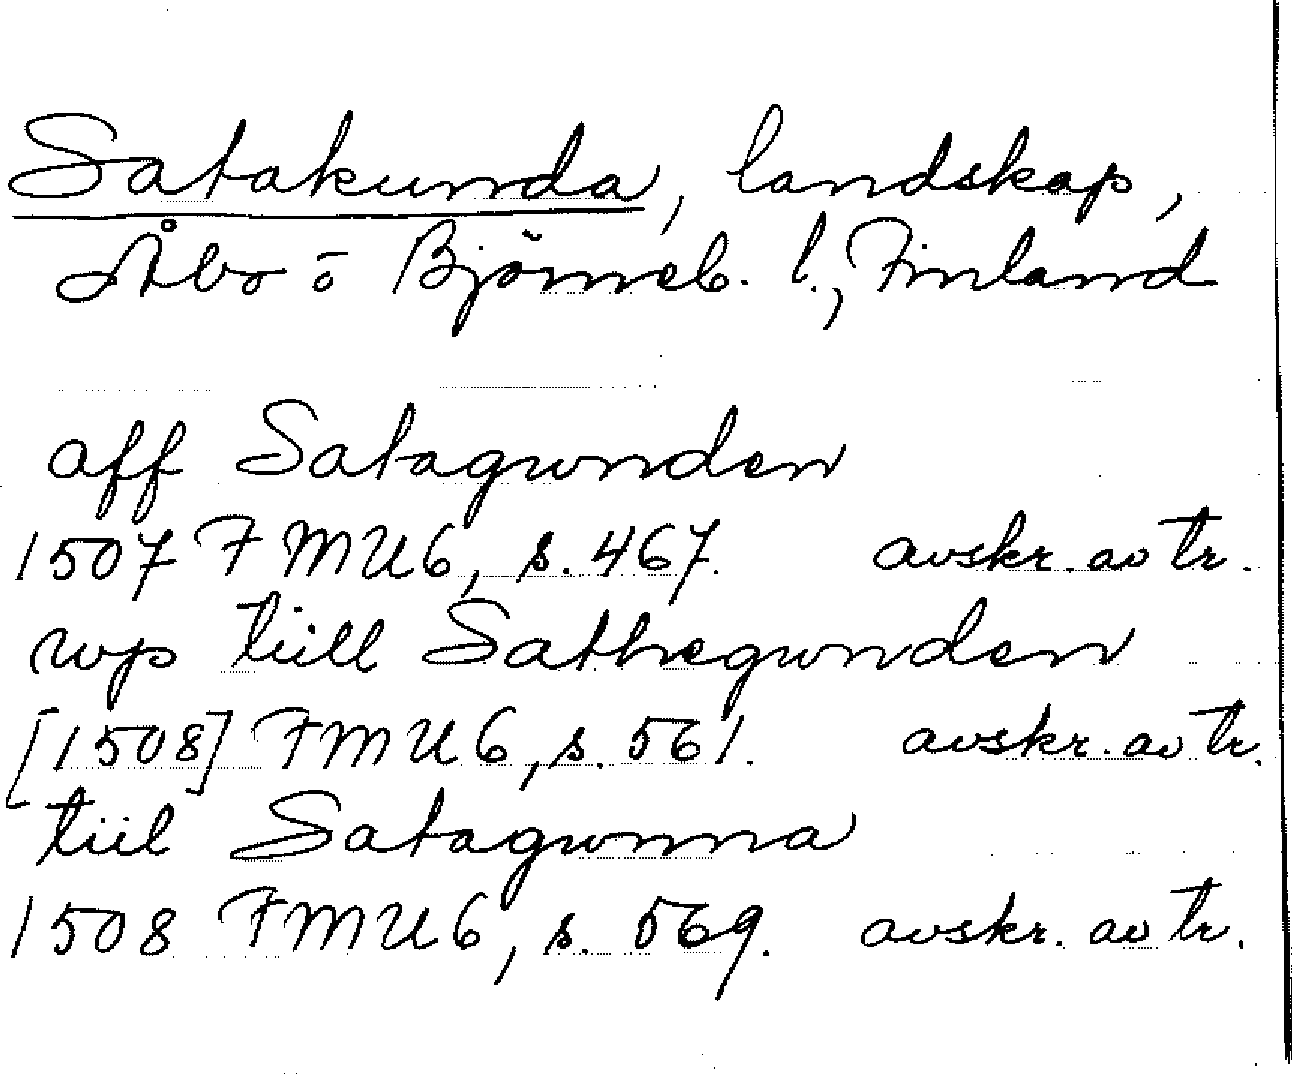 Satakunda, landskap,
Åbo o Björneb. l., Finland
aff Satagwnden
1507 FMU6, s. 467. avskr. av tr.
wp tiill Sathegwnden
[1508] FMU6, s. 561. avskr. av tr.
tiil Satagwnna
1508 FMU6, s. 569. avskr. av tr.